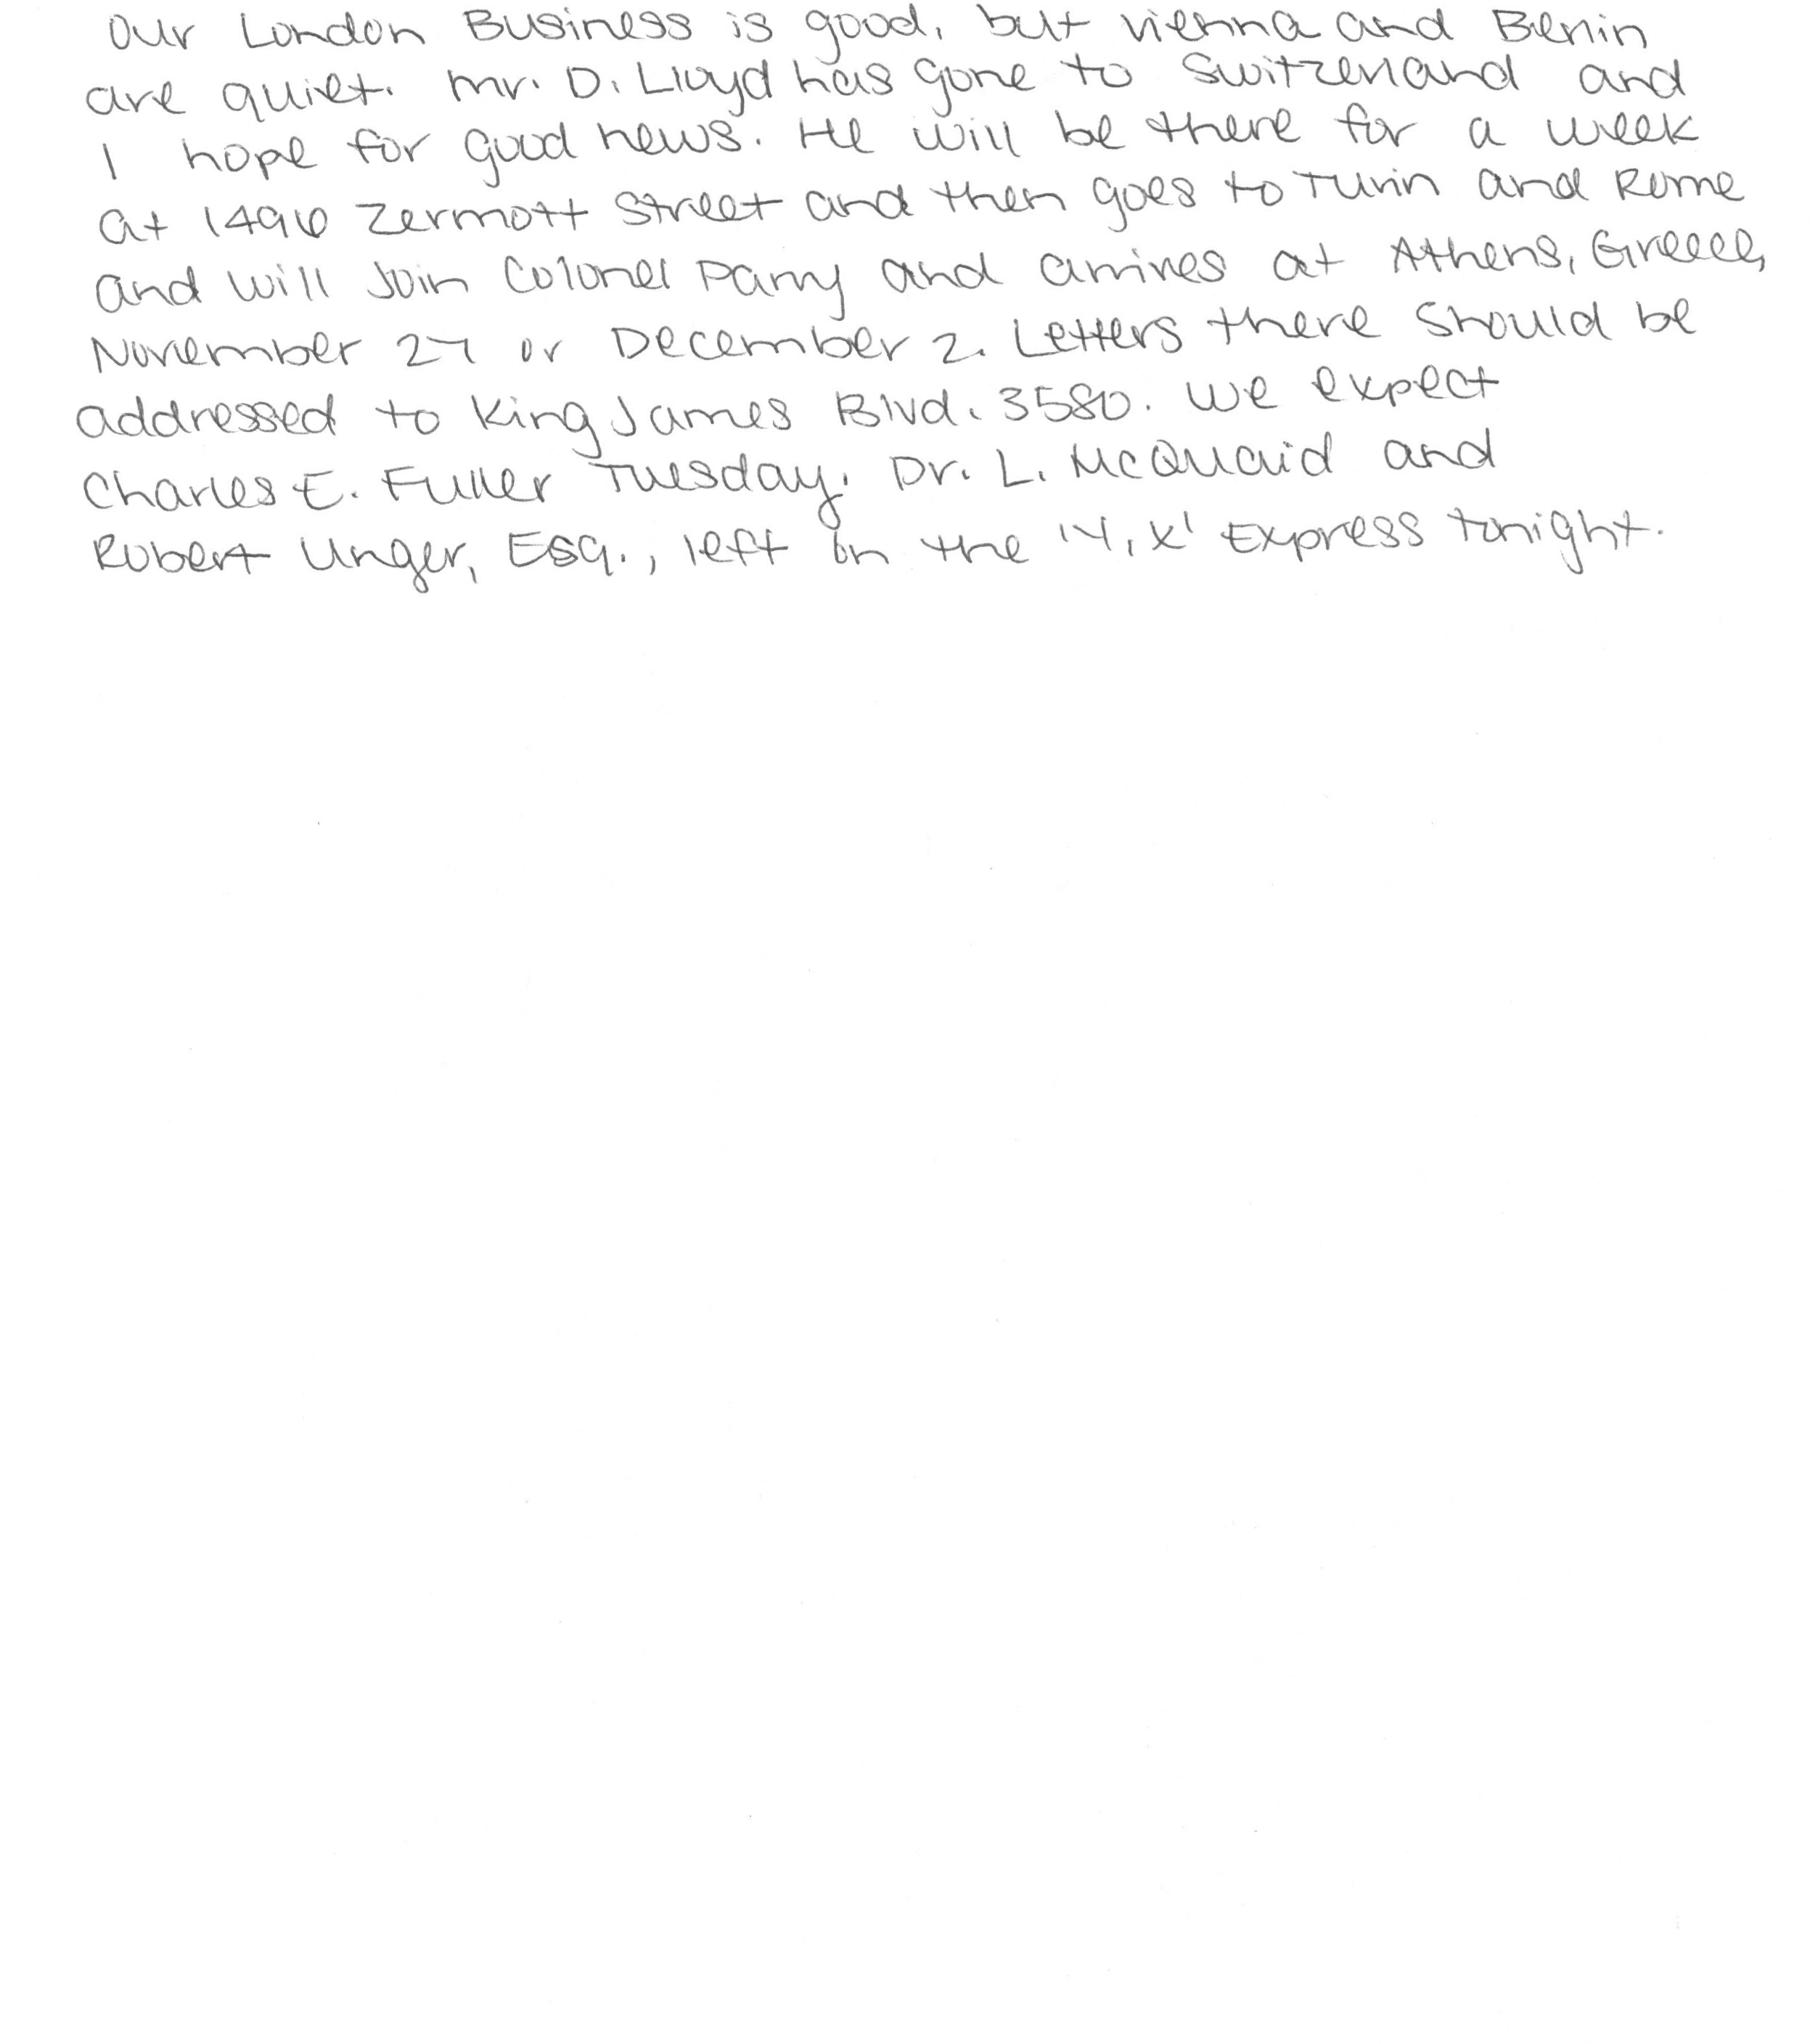 Our London Business is good, but Vienna and Berlin
are quiet. Mr. D. Lloyd has gone to Switzerland and
I hope for good news. He will be there for a week
at 1496 Zermott Street and then goes to Turin and Rome
and will join Colonel Parry and arrives at Athens, Greece,
November 27 or December 2. Letters there should be
addressed to King James Blvd. 3580. We expect
Charles E. Fuller Tuesday. Dr. L. McQuaid and
Robert Unger, Esq., left on the 'Y, X' Express tonight.